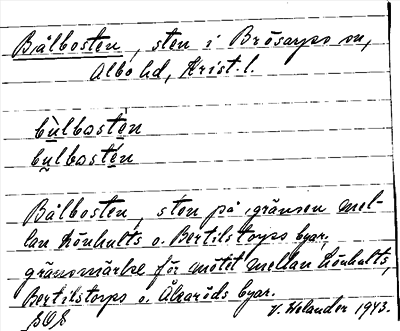 Bålbosten, sten i Brösarps sn,
Albo hd, Krist. l.
bùlbostèn
bulbostén
Bålbosten, sten på gränsen mel-
lan Lönhults o. Bertilstorps byar,
gränsmärke för mötet mellan Lönhults,
Bertilstorps o. Åkaröds byar.
V. Helander 1943.